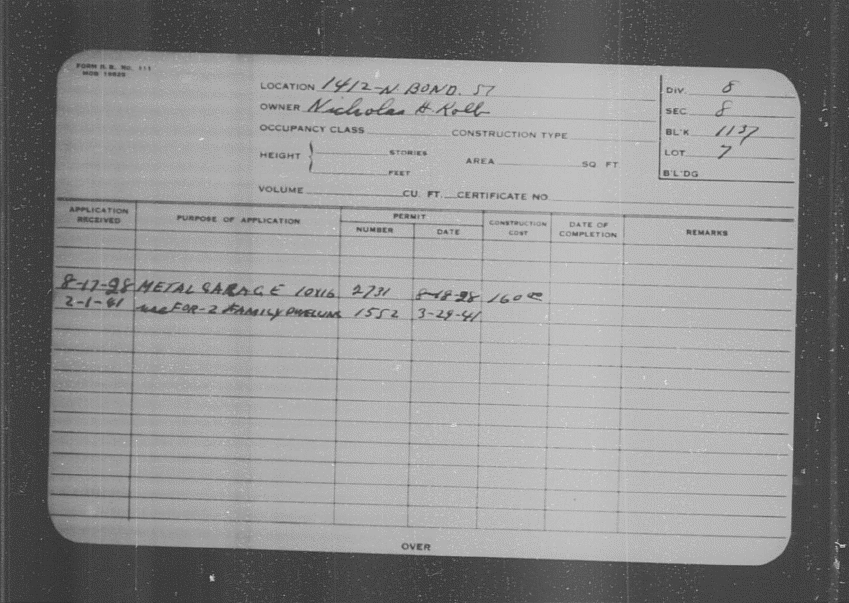 FORM H. B. No. 111
MDB 19625
LOCATION 1412-N. BOND. ST
OWNER Nicholas H. Kolb
OCCUPANCY CLASS CONSTRUCTION TYPE
HEIGHT { STORIES
FEET
AREA SQ FT
VOLUME CU. FT. CERTIFICATE NO.
DIV. 8
SEC. 8
BL'K 1137
LOT 7
B'L'DG
APPLICATION RECEIVED PURPOSE OF APPLICATION PERMIT NUMBER DATE CONSTRUCTION COST DATE OF COMPLETION REMARKS
8-17-28 METAL GARAGE 10x16 2731 8-18-28 160 00
2-1-41 use FOR-2 FAMILY DWELLING 1552 3-29-41
OVER